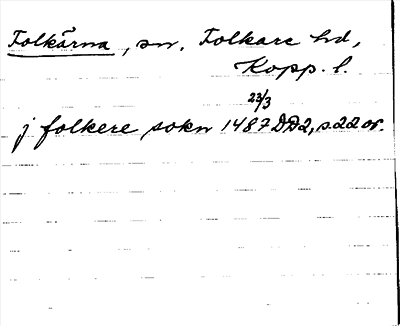 Folkärna, sn. Folkare hd,
Kopp. l.
23/3
j folkere sokn 1487 DD2, s. 22 or.